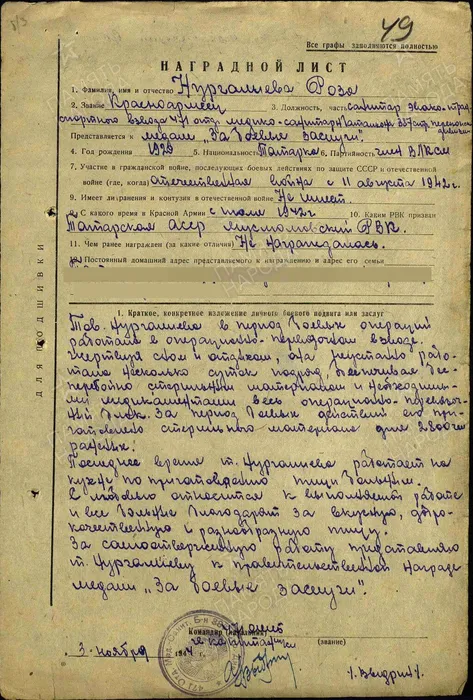 49
Все графы заполняются полностью
НАГРАДНОЙ ЛИСТ
1. Фамилия, имя и отчество Нургалиева Роза
2. Звание Красноармеец 3. Должность, часть санитар эвако-
спортного взвода 471 отд. медико-санитар. батальона
Представляется к медали "За боевые заслуги".
4. Год рождения 5. Национальность Татарка 6. Партийность член ВЛКСМ
7. Участие в гражданской войне, последующих боевых действиях по защите СССР и отечественной
войне (где, когда) отечественная война с 11 августа 1942 г.
9. Имеет ли ранения и контузии в отечественной войне Не имеет.
9. С какого времени в Красной Армии с июля 1942 г 10. Каким РВК призван
Татарская АССР РВК.
11. Чем ранее награжден (за какие отличия) Не награждалась.
12. Постоянный домашний адрес представляемого к награждению и адрес его семьи
ДЛЯ ПОДШИВКИ
1. Краткое, конкретное изложение личного боевого подвига или заслуг
Тов. Нургалиева в период боевых операций
работала в операционно-перевязочн взводе.
Жертвуя сном и отдыхом, она неустанно рабо-
тала несколько суток подряд обеспечивая бес-
перебойно стерильным материалом и необходимы-
ми медикаментами весь операционно-перевязоч-
ный блок. За период боевых действий ею при-
готовлено стерильного материала для 2800 чел
раненых.
Последнее время т. Нургалиева работает на
кухне по приготовлению пищи больным.
С любовью относится к выполняемой работе
и все больные благодарят за вкусную, добро-
качественную и разнообразную пищу.
За самоотверженную работу представляю
т. Нургалиеву к правительственной награде
медали "За боевые заслуги".
Командир (начальник)
(звание)
3 ноября 1944 г.
/. Выдрин /.